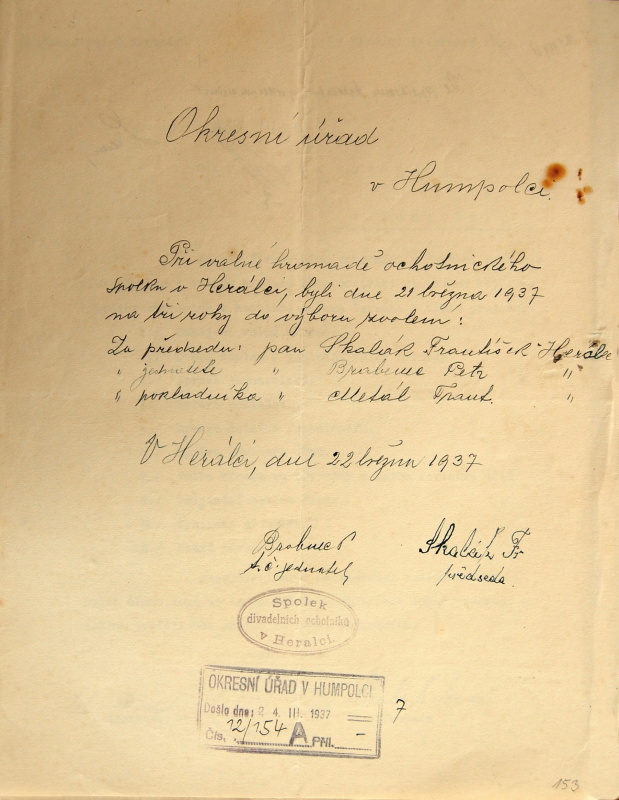 Okresní úřad
v Humpolci.
Při valné hromadě ochotnického
spolku v Herálci, byli dne 21 března 1937
na tři roky do výboru zvoleni:
Za předsedu: pan Skalák František Herálec
" jednatele " Brabenec Petr "
" pokladníka " Metál Frant. "
V Herálci, dne 22 března 1937
Brabenec P Skalák Fr
t.č. jednatel, předseda.
Spolek
divadelních ochotníků
v Heralci.
OKRESNÍ ÚŘAD V HUMPOLCI
Došlo dne: 24. III. 1937
Čís. 12/154 A příl. - 7
153